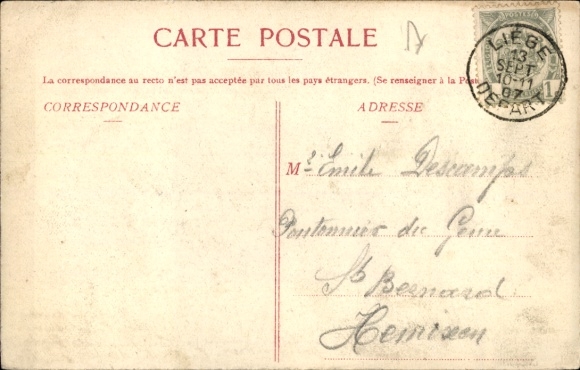 CARTE POSTALE
La correspondance au recto n'est pas acceptée par tous les pays étrangers. (Se renseigner à la Poste
CORRESPONDANCE
ADRESSE
LIÈGE
13
SEPT
10-11
07
DÉPART
1
Mr Emile Descamps
Pontonnier du Génie
St Bernard
Hemixem